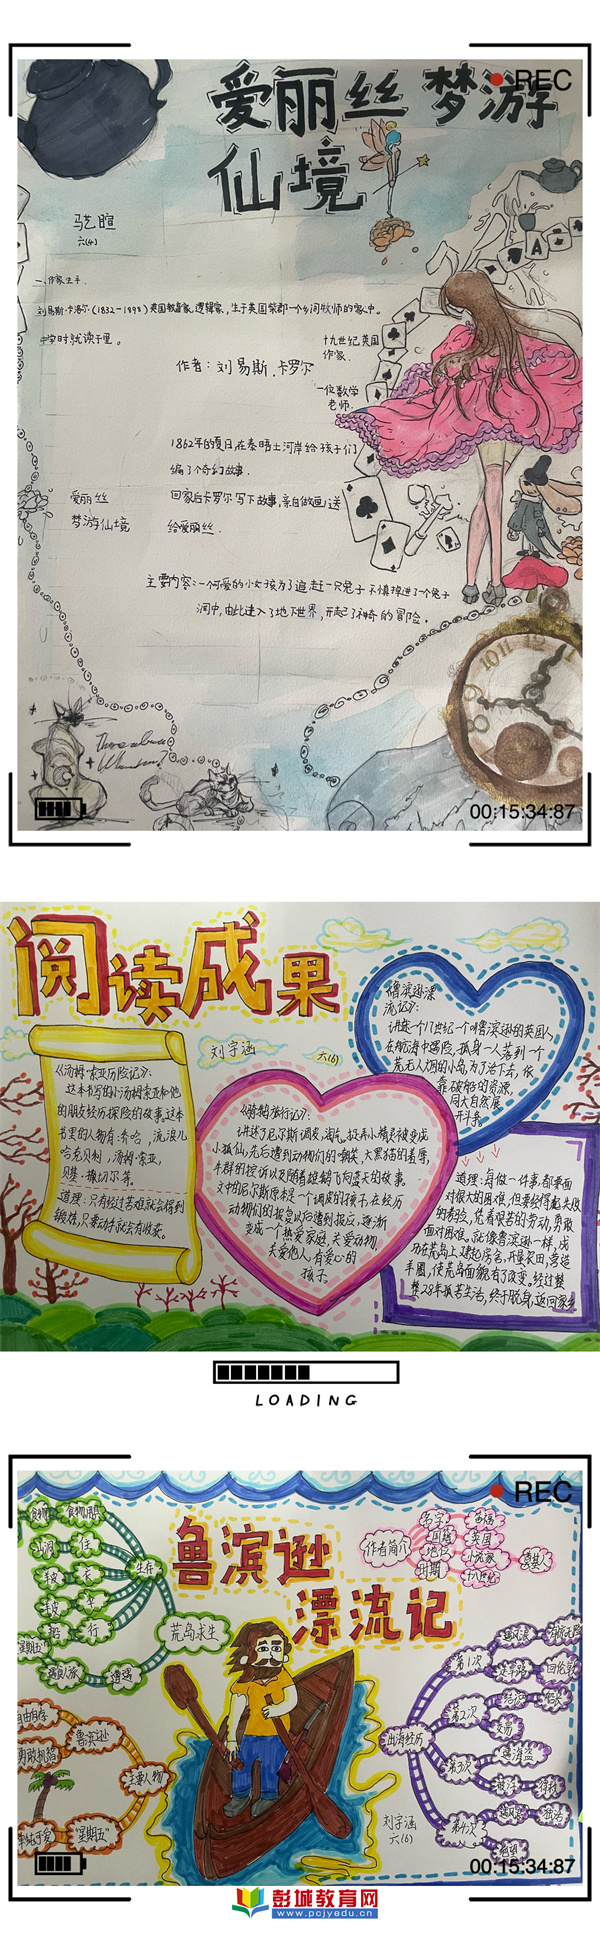 REC
爱丽丝 梦游
仙境
六(4)
一、作家生平
刘易斯·卡洛尔(1832-1898)英国教育家,逻辑家,生于英国柴郡一个乡间牧师的家中。
中学时就读于里。
十九世纪英国
作家.
作者:刘易斯.卡罗尔
一位数学
老师.
1862年的夏日,在泰晤士河岸给孩子们
编了个奇幻故事.
爱丽丝
梦游仙境
回家后卡罗尔写下故事,亲自做画送
给爱丽丝.
主要内容:一个可爱的小女孩为了追赶一只兔子 不慎掉进了一个兔子
洞中,由此进入了地下世界,开起了神奇的冒险。
00:15:34:87
阅读成果
刘宇涵
六(6)
《汤姆·索亚历险记》:
这本书写的小汤姆索亚和他
的朋友经历探险的故事。这本
书里的人物有:乔哈,流浪儿
哈克贝利,汤姆·索亚,
贝集·撒切尔等.
道理:只有经过苦难就会得到
锻炼,只要动手就会有收获。
《骑鹅旅行记》:
讲述了尼尔斯调皮,淘气。捉弄小精灵被变成
小狐仙,先后遭到动物们的嘲笑,大家猫的羞辱,
牛群的控诉以及随着雄鹅飞向蓝天的故事.
文中的尼尔斯原本是一个调皮的孩子,在经历
动物们的报复以后遭到报应,逐渐
变成一个热爱家庭,关爱动物,
关爱他人,有爱心的
孩子.
《鲁滨逊漂
流记》:
讲述一个17世纪一个叫鲁滨逊的英国人,
在航海中遇险,孤身一人落到一个
荒无人烟的小岛,为了活下去,依
靠破船的资源,
同大自然展
开斗争.
道理:每做一件事,都要面
对很大的困难,但要经得起失败
的考验,凭着艰苦的劳动,勇敢
面对困难,就像鲁滨逊一样,成
功在荒岛上建起房舍,开垦农田,营造
羊圈,使荒岛面貌有了改变。经过整
整28年孤苦生活,终于脱身,返回家乡
LOADING
REC
鲁滨逊
漂流记
作者简介
名字
国籍
英国
地位
小说家
时期
十八世纪
食物
住
衣
行
生存
遭遇
荒岛求生
鲁滨逊
主要人物
"星期五"
出海经历
第1次
第2次
第3次
第4次
遇海盗
刘宇涵
六(6)
00:15:34:87
彭城教育网
www.pcjyedu.cn